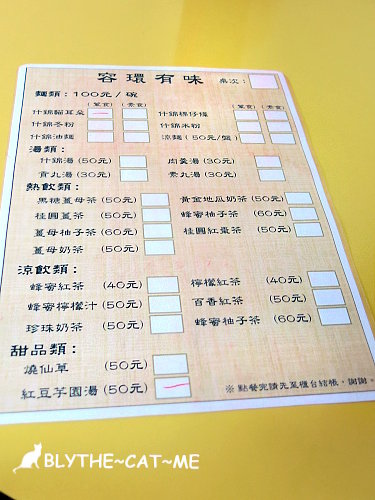 容環有味 桌次：
麵類：100元／碗
(葷食)(素食) (葷食)(素食)
什錦貓耳朵 什錦粿仔條
什錦冬粉 什錦米粉
什錦油麵 涼麵(50元/盤)
湯類：
什錦湯(50元) 肉羹湯(30元)
貢丸湯(30元) 素丸湯(30元)
熱飲類：
黑糖薑母茶(50元) 黃金地瓜奶茶(50元)
桂圓薑茶(50元) 蜂蜜柚子茶(60元)
薑母柚子茶(60元) 桂圓紅棗茶(50元)
薑母奶茶(50元)
涼飲類：
蜂蜜紅茶(40元) 檸檬紅茶(40元)
蜂蜜檸檬汁(50元) 百香紅茶(50元)
珍珠奶茶(50元) 蜂蜜柚子茶(60元)
甜品類：
燒仙草(50元)
紅豆芋圓湯(50元)
※點餐完請先至櫃台結帳，謝謝。
BLYTHE~CAT~ME